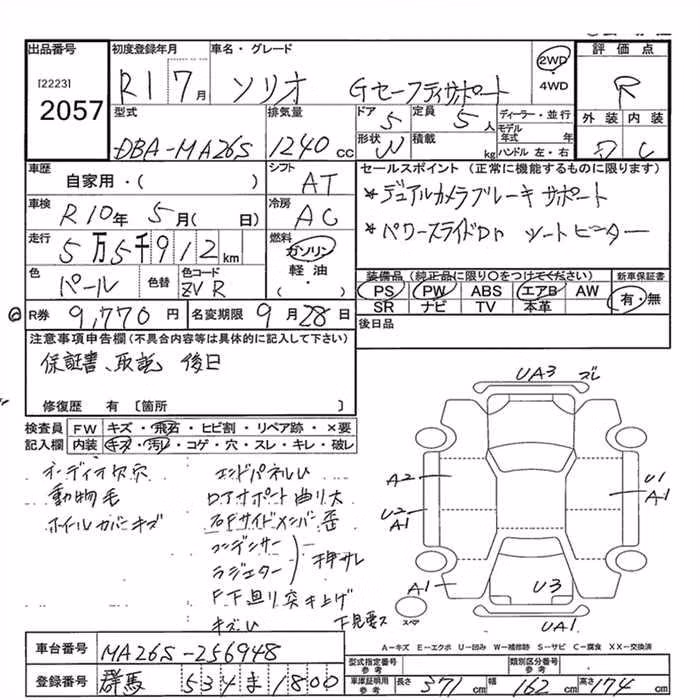 出品番号 初度登録年月 車名・グレード 評価点
[2223] 2057 R1 7月 ソリオ Gセーフティサポート 2WD ・ 4WD R
型式 排気量 ドア 5 定員 5人 ディーラー・並行 外装 内装
DBA-MA26S 1240cc 形状 W 積載 kg モデル年式 年 ハンドル 左・右 C
車歴 自家用・( ) シフト AT セールスポイント (正常に機能するものに限ります)
車検 R10年 5月( 日) 冷房 AC *デュアルカメラブレーキサポート
走行 5万5千912km 燃料 ガソリン 軽油・( ) *パワースライドDr シートヒーター
色 パール 色替 色コード ZVR 装備品(純正品に限り○をつけてください) 新車保証書
PS PW ABS エアB AW 有・無
SR ナビ TV 本革
R券 9,770円 名変期限 9月28日 後日品
注意事項申告欄(不具合内容等は具体的に記入して下さい)
保証書、取説 後日
修復歴 有 〔箇所 〕
検査員 FW キズ・飛石・ヒビ割・リペア跡・×要
記入欄 内装 キズ・汚レ・コゲ・穴・スレ・キレ・破レ
UA3 ズレ
オーディオ欠穴 エンドパネルU A2 U1
動物毛 コアサポート曲リ大 A1
ホイールカバーキズ 右Fサイドメンバー歪 U2
コンデンサー A1
ラジエター 押サレ
F下廻り突き上げ A1 U3
キズU 下見要ス スペア UA1
A－キズ E－エクボ U－凹み W－補修跡 S－サビ C－腐食 XX－交換済
車台番号 MA26S-256948 型式指定番号 参考 類別区分番号 参考
登録番号 群馬 534 ま 1800 車庫証明用 参考 長さ 371cm 幅 162cm 高さ 174cm